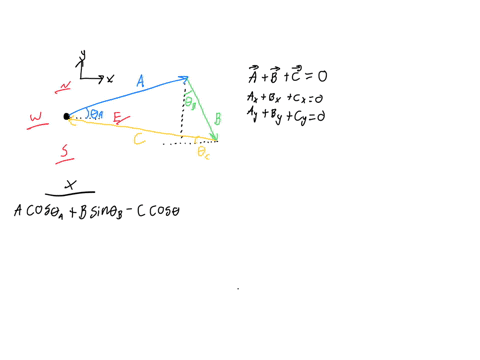 y
x
N
A
θA
θB
W
E
B
C
S
θc
A⃗ + B⃗ + C⃗ = 0
Ax + Bx + Cx = 0
Ay + By + Cy = 0
x
A cosθA + B sinθB − C cosθ